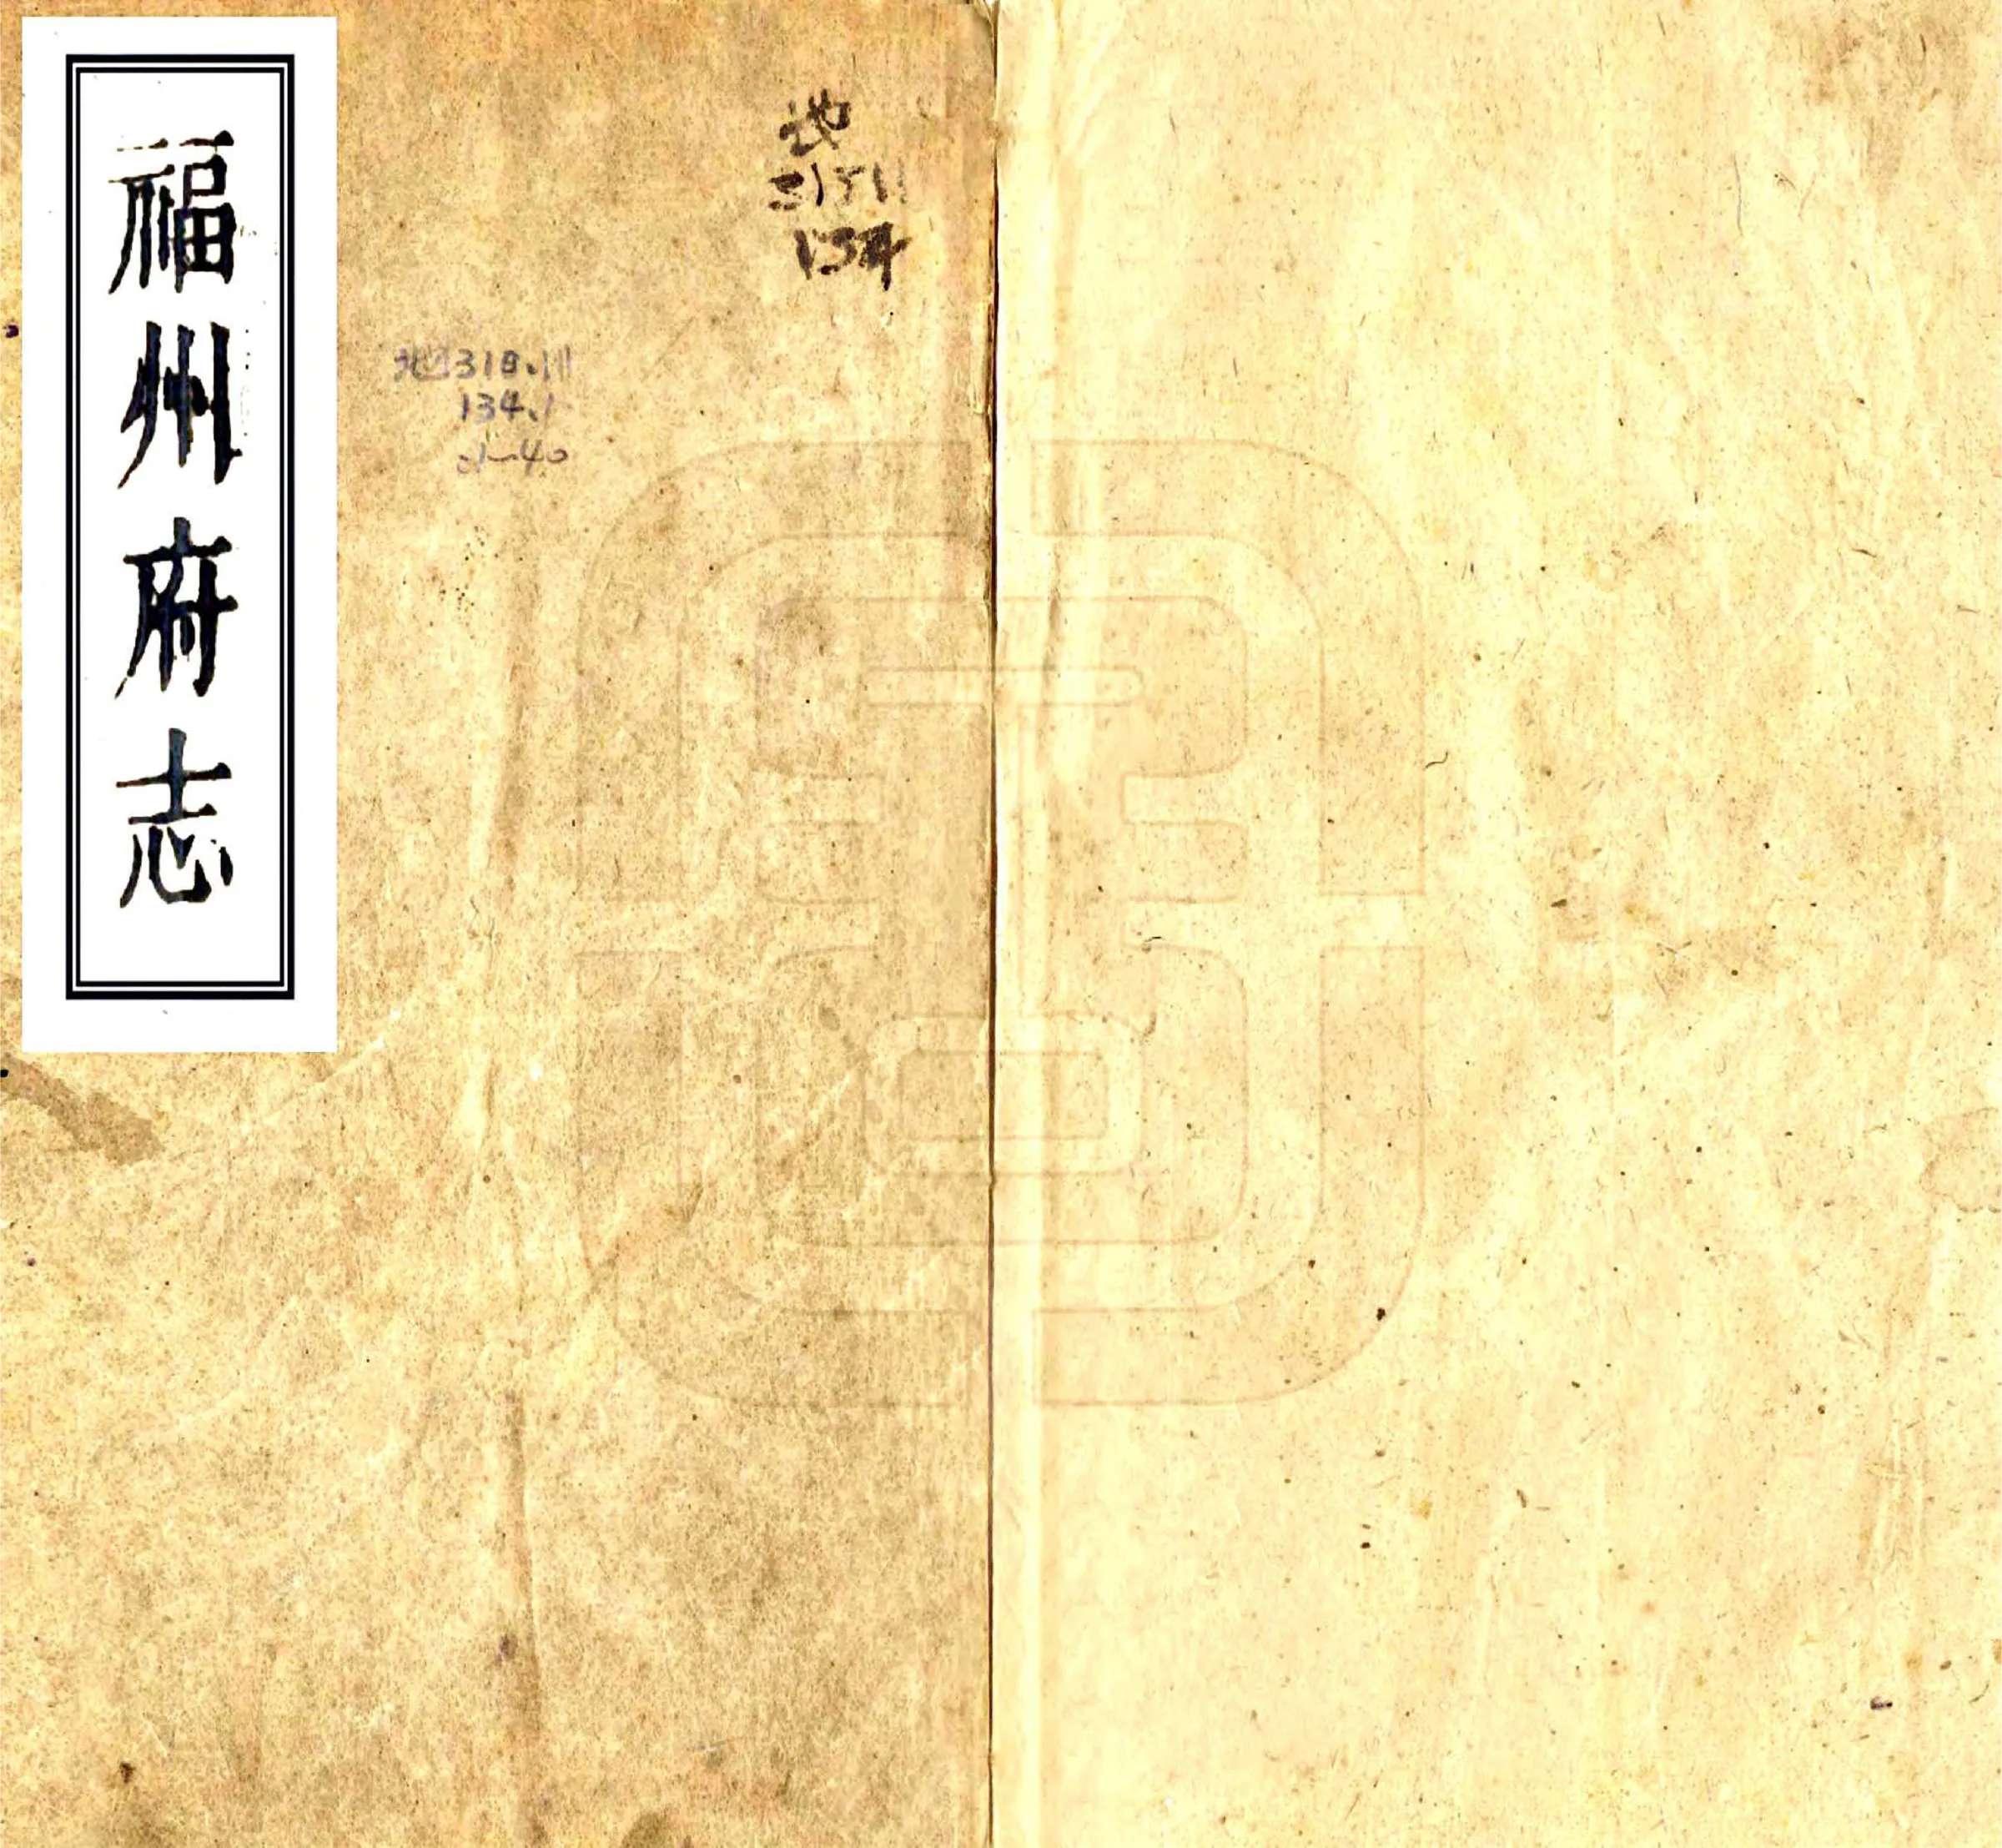 福州府志
地
31511
134
地318.111
134.1
:1~40